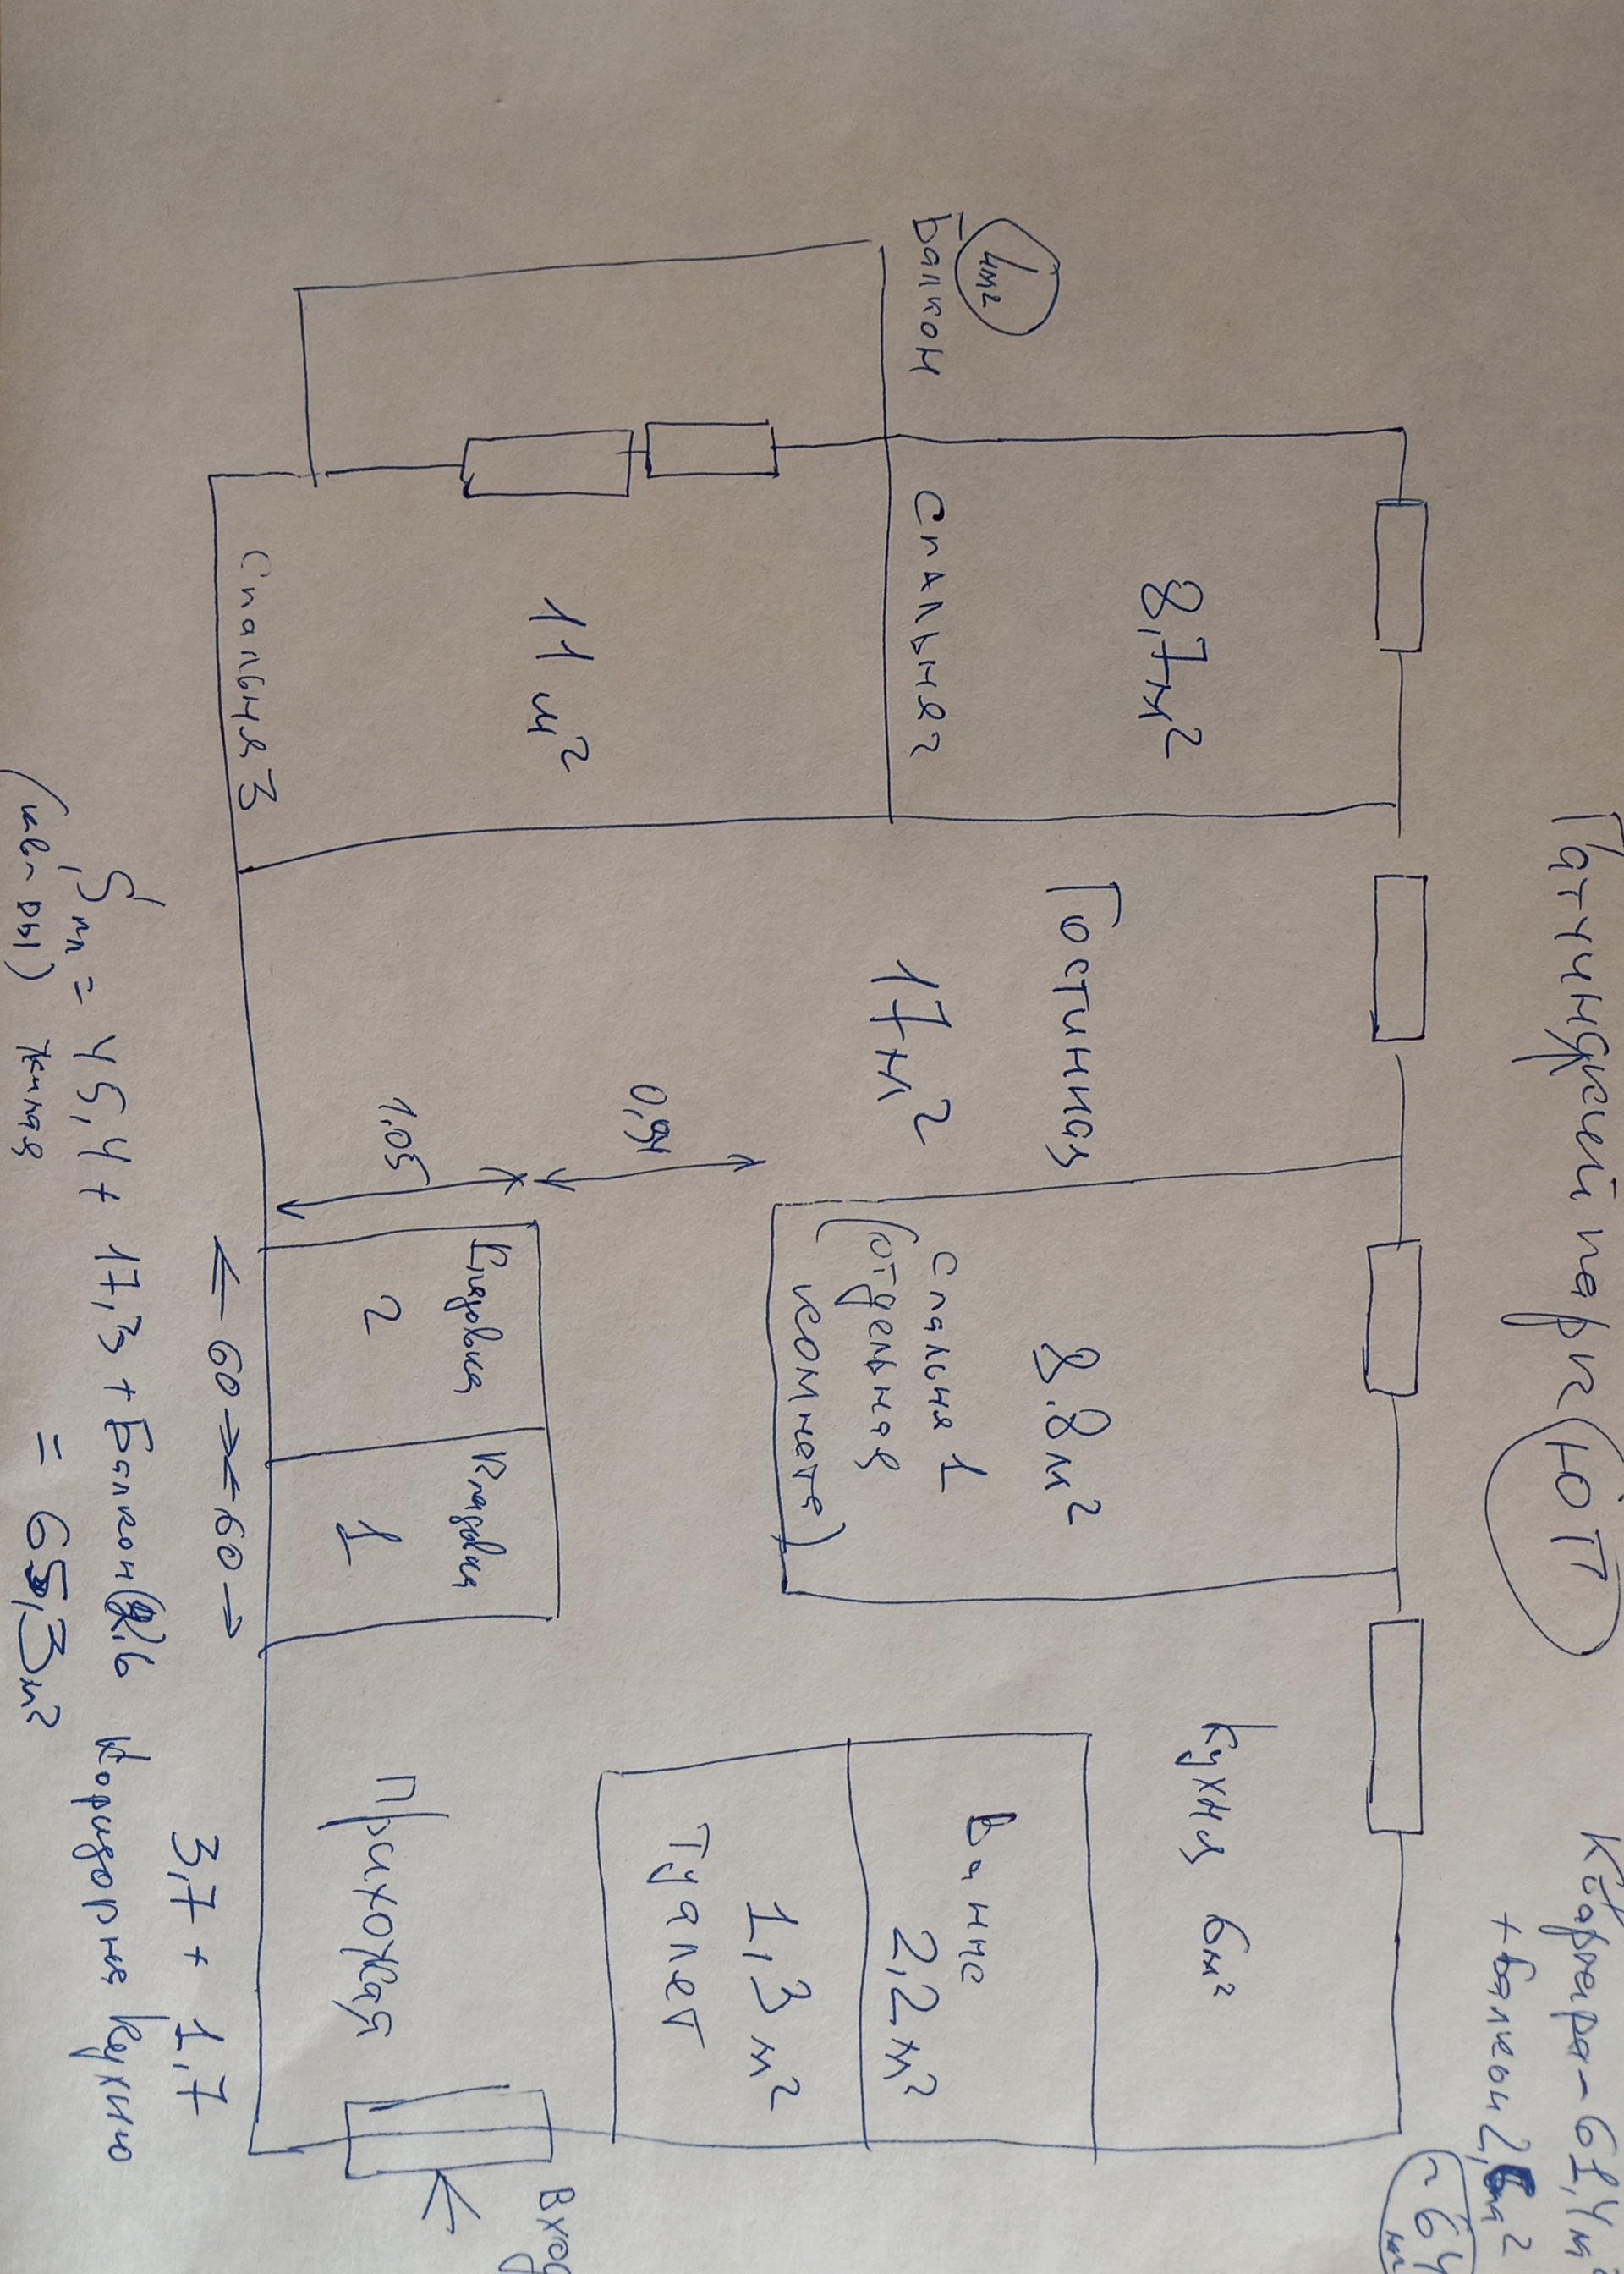 Квартира - 61,4 м²
+ балкон 2,6 м²
~ 64 м²
ЮТП
Балкон
4м²
8,7м²
Спальня 2
11 м²
Спальня 3
Гостинная
17м²
0,94
1,05
8.8м²
Спальня 1
(отдельная
комната)
Кладовка
2
Кладовка
1
← 60 → ← 60 →
Кухня 6м²
Ванне
2,2м²
1,3 м²
Туалет
Прихожая
Вход
3,7 + 1,7
= 45,4 + 17,3 + Балкон 2,6 коридор на кухню
жилая = 65,3м²